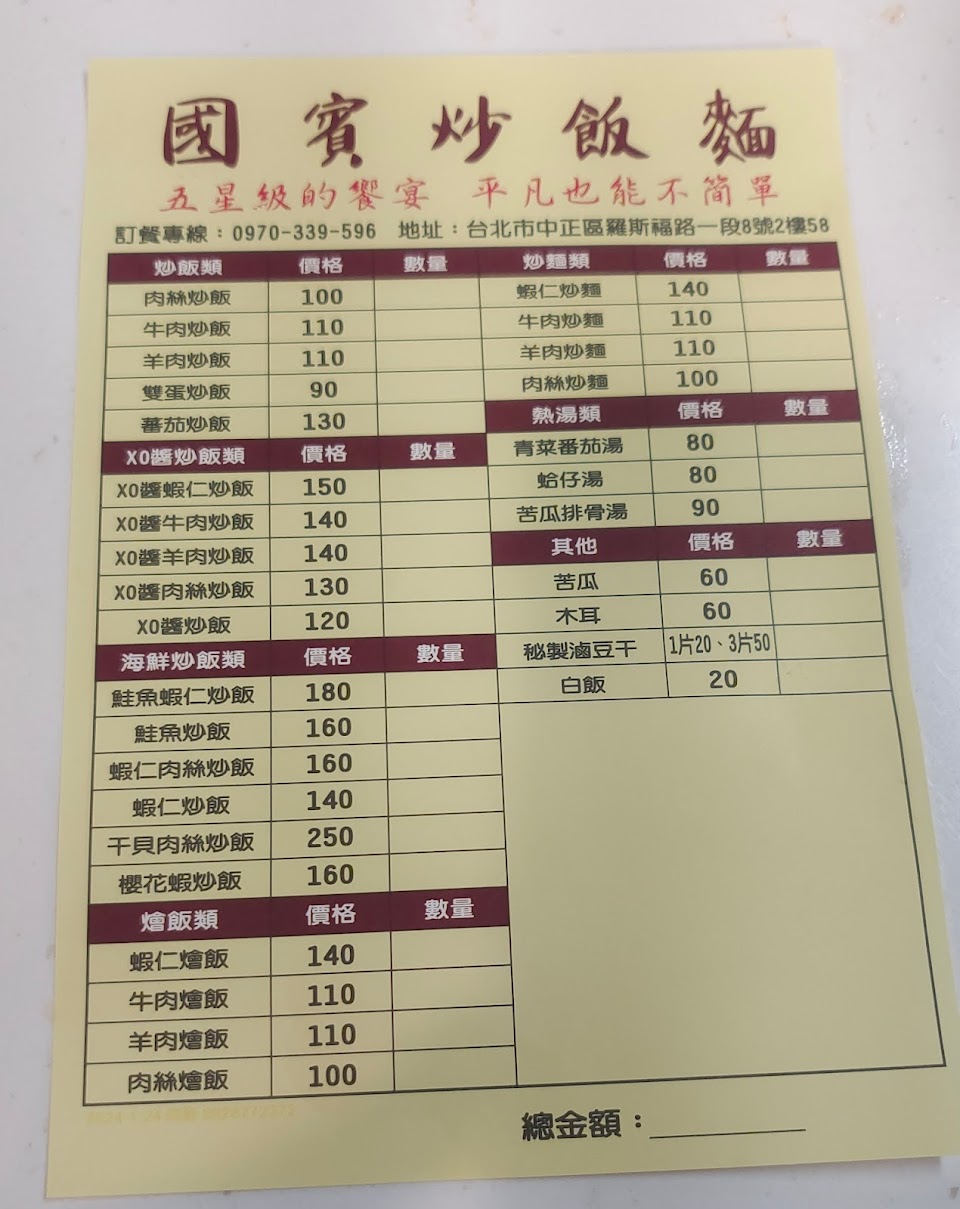 國賓炒飯麵
五星級的饗宴 平凡也能不簡單
訂餐專線：0970-339-596 地址：台北市中正區羅斯福路一段8號2樓58
炒飯類 價格 數量
肉絲炒飯 100
牛肉炒飯 110
羊肉炒飯 110
雙蛋炒飯 90
蕃茄炒飯 130
XO醬炒飯類 價格 數量
XO醬蝦仁炒飯 150
XO醬牛肉炒飯 140
XO醬羊肉炒飯 140
XO醬肉絲炒飯 130
XO醬炒飯 120
海鮮炒飯類 價格 數量
鮭魚蝦仁炒飯 180
鮭魚炒飯 160
蝦仁肉絲炒飯 160
蝦仁炒飯 140
干貝肉絲炒飯 250
櫻花蝦炒飯 160
燴飯類 價格 數量
蝦仁燴飯 140
牛肉燴飯 110
羊肉燴飯 110
肉絲燴飯 100
炒麵類 價格 數量
蝦仁炒麵 140
牛肉炒麵 110
羊肉炒麵 110
肉絲炒麵 100
熱湯類 價格 數量
青菜番茄湯 80
蛤仔湯 80
苦瓜排骨湯 90
其他 價格 數量
苦瓜 60
木耳 60
秘製滷豆干 1片20、3片50
白飯 20
總金額：